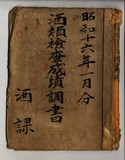 昭和十六年一月分
酒類檢査成績調書
酒課